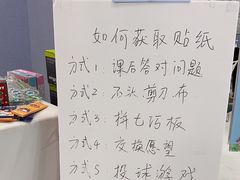 如何获取贴纸
方式1：课后答对问题
方式2：石头剪刀布
方式3：拼七巧板
方式4：交换愿望
方式5：投球游戏